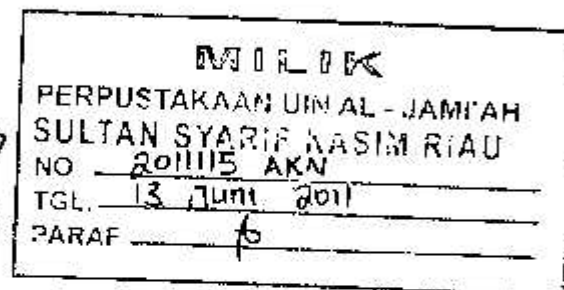 MILIK
PERPUSTAKAAN UIN AL - JAMI'AH
SULTAN SYARIF KASIM RIAU
NO 2011115 AKN
TGL. 13 Juni 2011
PARAF